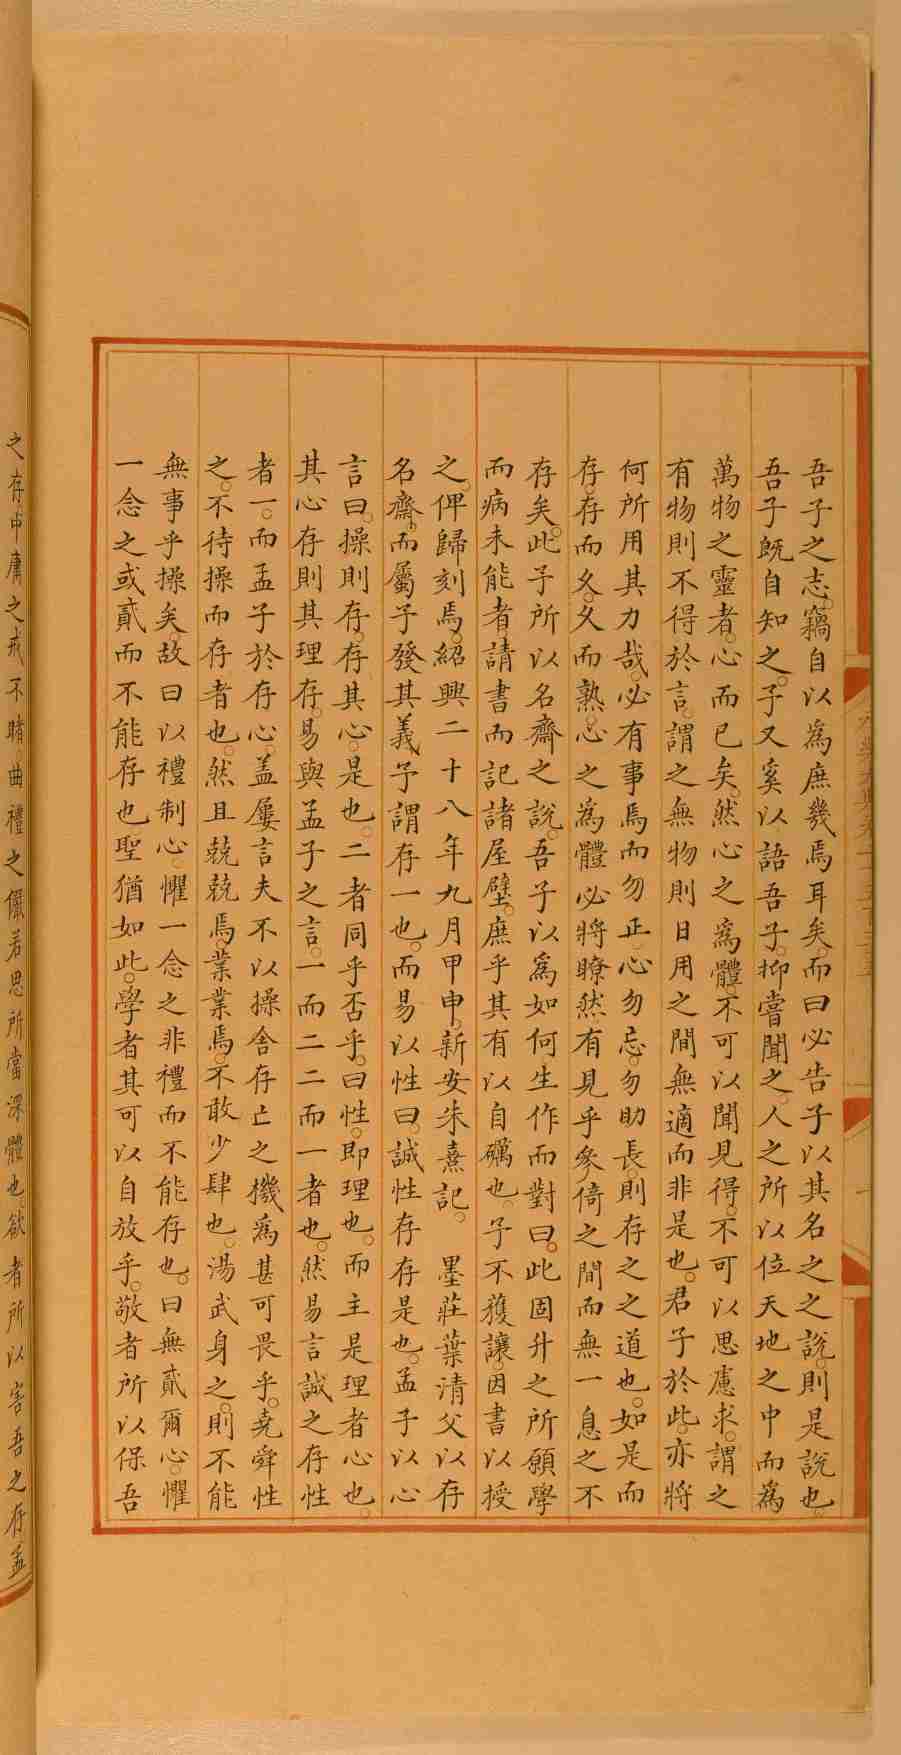 吾子之志。竊自以為庶幾焉耳矣。而曰必告子以其名之之說。則是說也。
吾子既自知之。予又奚以語吾子。抑嘗聞之。人之所以位天地之中而為
萬物之靈者。心而已矣。然心之為體。不可以聞見得。不可以思慮求。謂之
有物則不得於言。謂之無物則日用之間無適而非是也。君子於此。亦將
何所用其力哉。必有事焉而勿正。心勿忘。勿助長。則存之之道也。如是而
存。存而久。久而熟。心之為體必將瞭然有見乎參倚之間而無一息之不
存矣。此予所以名齋之說。吾子以為如何。生作而對曰。此固升之所願學
而病未能者。請書而記諸屋壁。庶乎其有以自礪也。予不獲讓。因書以授
之。俾歸刻焉。紹興二十八年九月甲申。新安朱熹記。 墨莊葉清父以存
名齋。而屬予發其義予謂存一也。而易以性曰。誠性存存是也。孟子以心
言曰。操則存。存其心。是也。二者同乎否乎。曰性。即理也。而主是理者心也。
其心存則其理存。易與孟子之言。一而二二而一者也。然易言誠之存性
者一。而孟子於存心。盖屢言夫不以操舍存亡之機為甚可畏乎。堯舜性
之。不待操而存者也。然且兢兢焉。業業焉。不敢少肆也。湯武身之。則不能
無事乎操矣。故曰以禮制心。懼一念之非禮而不能存也。曰無貳爾心。懼
一念之或貳而不能存也。聖猶如此。學者其可以自放乎。敬者所以保吾
之存中庸之戒不睹。曲禮之儼若思所當深體也。欲者所以害吾之存孟